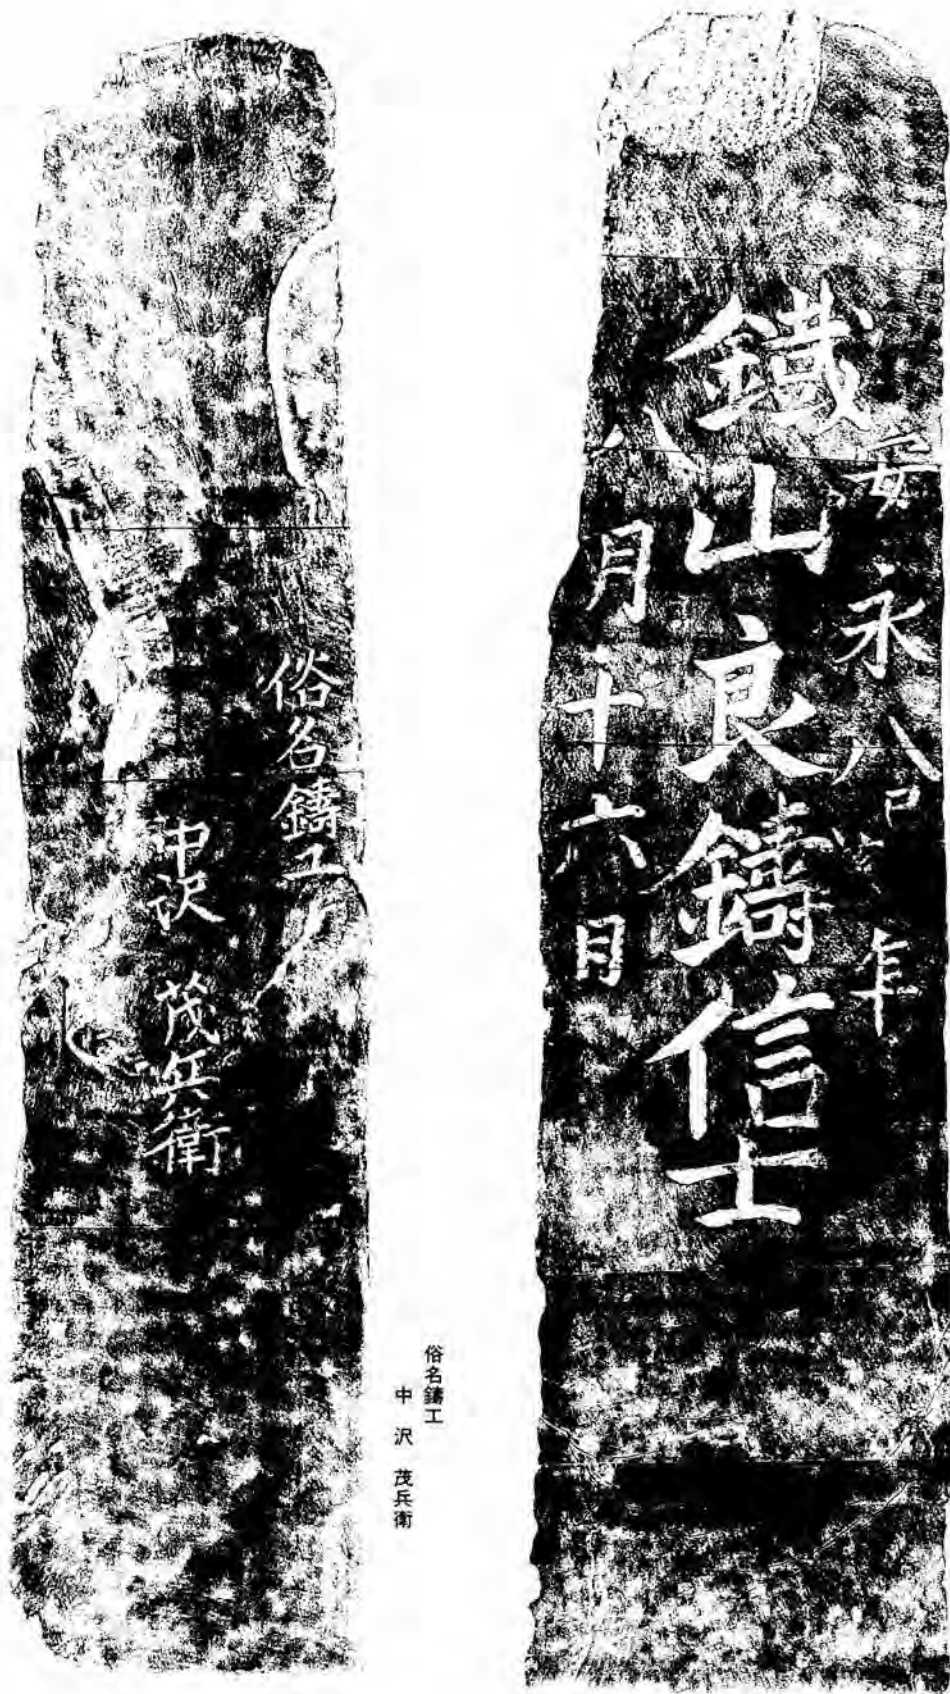 安永八己亥年
鐵山良鑄信士
八月十六日
俗名鑄工
中沢 茂兵衛
俗名鑄工
中沢 茂兵衛